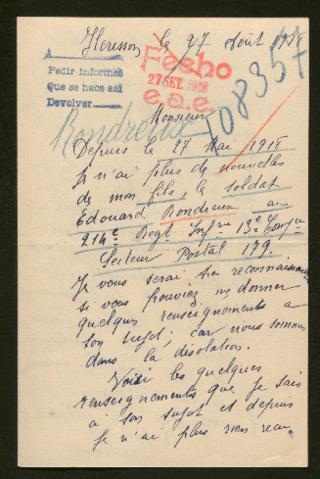 le 27 Août 1918
Fecho
27 SET. 1918
e.a.e.
Pedir informes
Que se hace así
Devolver
Rondreux
108357
Monsieur
Depuis le 27 Mai 1918
je n'ai plus de nouvelles
de mon fils, le soldat
Edouard Rondreux au
214e Regt Infrie 13e Compie
Secteur Postal 179.
Je vous serai très reconnaissant
si vous pouviez me donner
quelques renseignements a
son sujet; car nous sommes
dans la désolation.
Voici les quelques
renseignements que je sais
à son sujet et depuis
je n'ai plus rien reçu